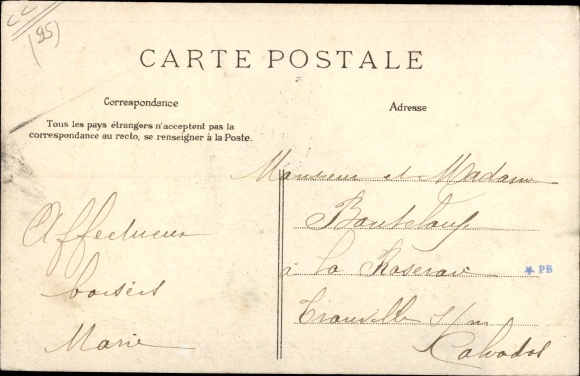 (95)
CARTE POSTALE
Correspondance
Tous les pays étrangers n'acceptent pas la
correspondance au recto, se renseigner à la Poste.
Affectueux
baisers
Marie
Adresse
Monsieur et Madame
à la Roseraie
Trouville s/m
Calvados
PB